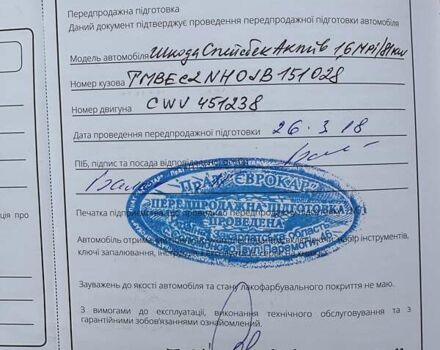 Передпродажна підготовка
Даний документ підтверджує проведення передпродажної підготовки автомобіля
Модель автомобіля Шкода Спейсбек Актів 1,6 MPI/81кw
Номер кузова TMBEC2NH0JB151028
Номер двигуна CWV 451238
Дата проведення передпродажної підготовки 26.3.18
ПІБ, підпис та посада
ПрАТ "ЄВРОКАР"
ПЕРЕДПРОДАЖНА ПІДГОТОВКА №1
ПРОВЕДЕНА
область
вул. Перемоги, 46
Печатка
ція про
Автомобіль отрима
набір інструментів,
ключі запалювання,
Зауважень до якості автомобіля та стану лакофарбувального покриття не маю.
З вимогами до експлуатації, виконання технічного обслуговування та з
гарантійними зобов'язаннями ознайомлений.